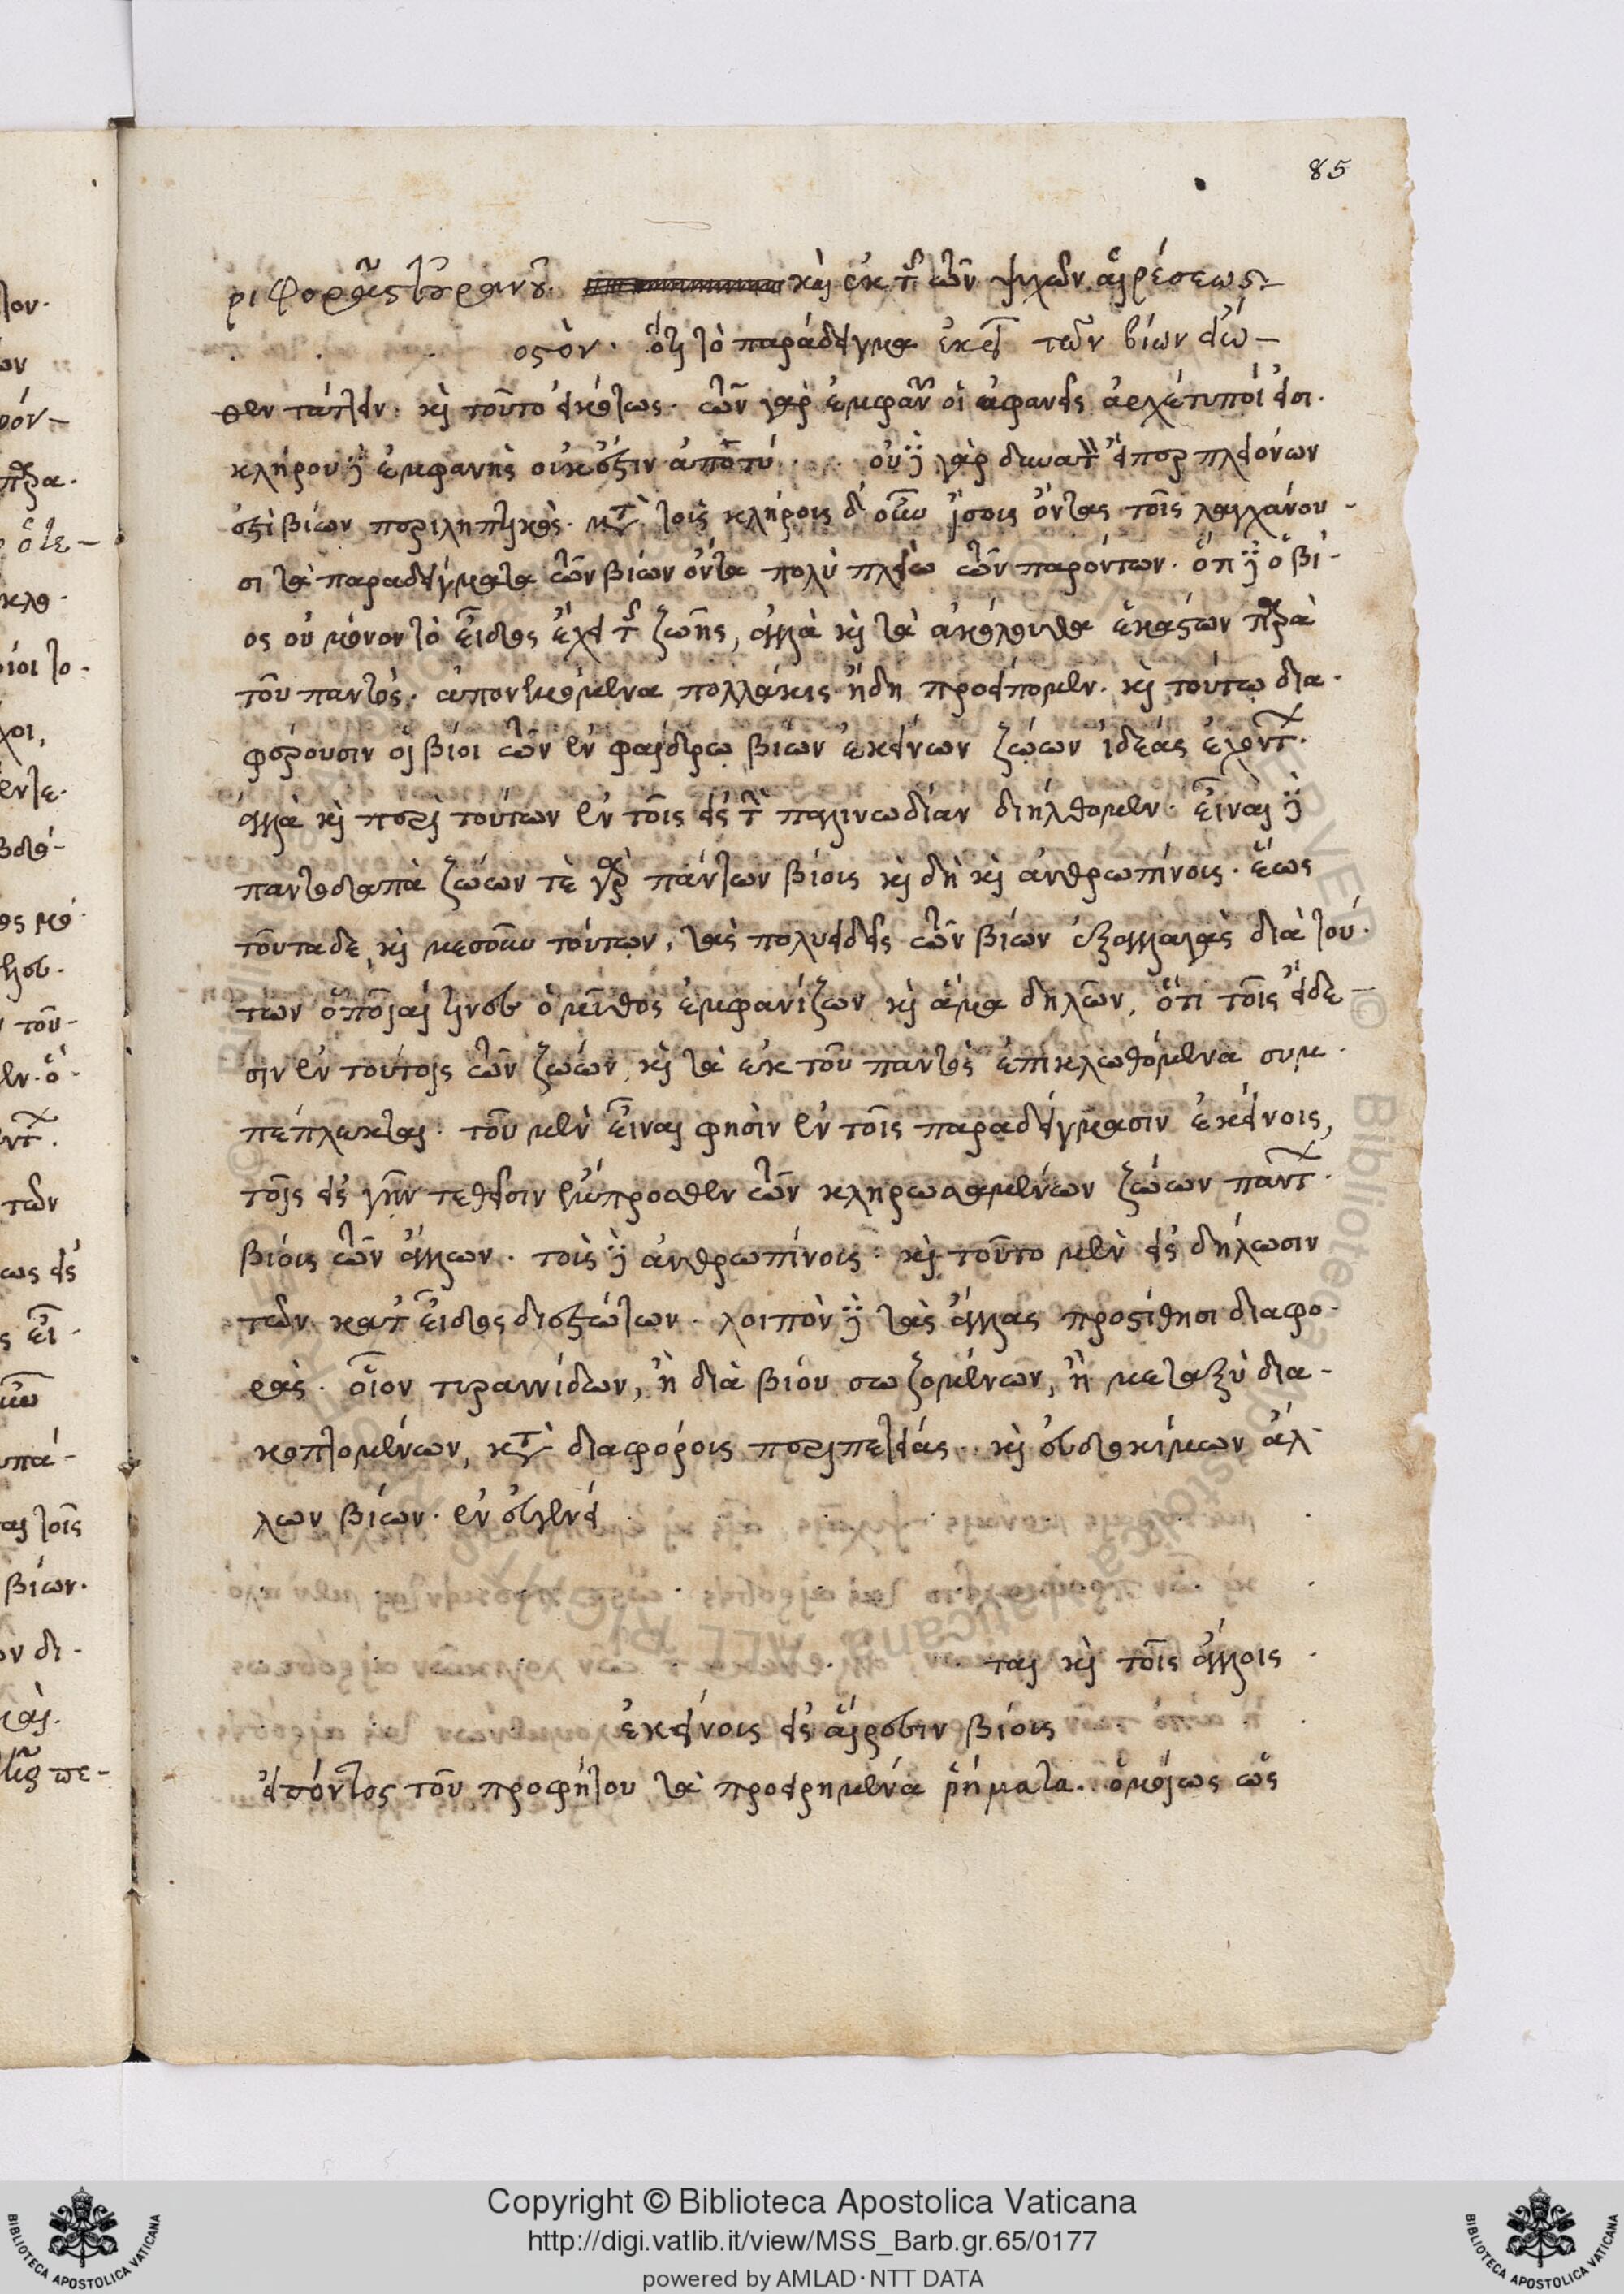 85
ριφορᾶς τοῦ οὐρανοῦ. καὶ ἐκ τῆς τῶν ψυχῶν αἱρέσεως
οσὸν. ὅτι τὸ παράδειγμα ἐκεῖ τῶν βίων ἄνω-
θεν τάττειν. καὶ τοῦτο εἰκότως. τῶν γὰρ ἐμφανῶν οἱ ἀφανεῖς ἀρχέτυποί εἰσι.
κλήρου δὲ ἐμφανὴς οὐκ ἔστιν οὐδὲ γὰρ δυνατὸν εἴπερ πλειόνων
ἐστὶ βίων περιληπτικὸς. κατὰ τοῖς κλήροις δ' οὖν ἴσοις ὄντας τοῖς λαγχάνου-
σι τὰ παραδείγματα τῶν βίων ὄντα πολὺ πλείω τῶν παρόντων. ὅτι δὲ ὁ βί-
ος οὐ μόνον τὸ εἶδος ἔχει τῆς ζωῆς, ἀλλὰ καὶ τὰ ἀκόλουθα ἑκάστων παρὰ
τοῦ παντός. ἀπονεμόμενα πολλάκις ἤδη προείπομεν. καὶ τούτῳ δια-
φέρουσιν οἱ βίοι τῶν ἐν φαίδρῳ βίων ἐκείνων ζῴων ἰδέας ἐχόντων.
ἀλλὰ καὶ περὶ τούτων ἐν τοῖς εἰς τὴν παλινωδίαν διήλθομεν. εἶναι δὲ
παντοδαπὰ ζώων τὲ γὰρ πάντων βίοις καὶ δὴ καὶ ἀνθρωπίνοις. ἕως
τοῦτα δε καὶ μεσοῦν τούτων, τὰς πολυειδεῖς τῶν βίων ἐξαλλαγὰς διὰ τού-
των ὁποῖαί τινες ὁ μῦθος ἐμφανίζων καὶ ἅμα δηλῶν, ὅτι τοῖς εἴδε-
σιν ἐν τούτοις τῶν ζώων, καὶ τὰ ἐκ τοῦ παντὸς ἐπικλωθόμενα συμ-
πέπλεκται. τοῦ μὲν εἶναι φησὶν ἐν τοῖς παραδείγμασιν ἐκείνοις,
τοῖς εἰς γῆν τεθεῖσιν ἔμπροσθεν τῶν κληρωσαμένων ζώων πάντων
βίοις τῶν ἄλλων. τοὶς δὲ ἀνθρωπίνοις. καὶ τοῦτο μὲν εἰς δήλωσιν
τῶν κατ' εἶδος διεστώτων. λοιπὸν δὲ τὰς ἄλλας προστίθησι διαφο-
ρὰς. οἷον τυραννίδων, ἢ διὰ βίου σωζομένων, ἢ μεταξὺ δια-
κοπτομένων, κατὰ διαφόροις περιπετείας. καὶ εὐδοκίμων ἀλ-
λων βίων. ἐν εὐγενεί
ται καὶ τοῖς ἄλλοις
ἐκείνοις εἰς αἵρεσιν βίοις
εἰπόντος τοῦ προφήτου τὰ προειρημένα ῥήματα. ὁμοίως ὡς
Copyright © Biblioteca Apostolica Vaticana
http://digi.vatlib.it/view/MSS_Barb.gr.65/0177
powered by AMLAD · NTT DATA